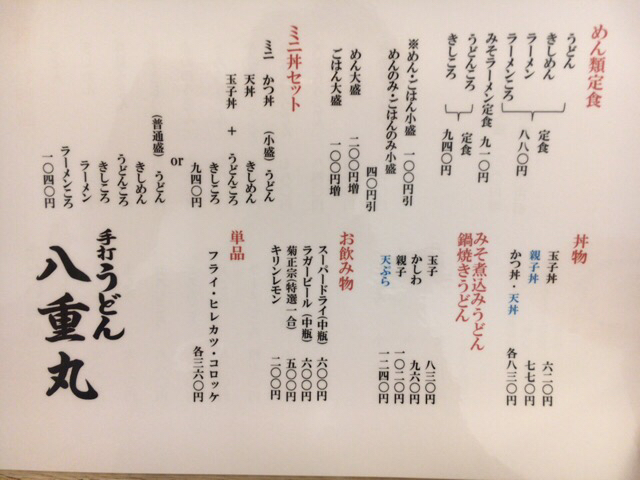 めん類定食
うどん
きしめん
ラーメン
ラーメンころ
定食
八八〇円
みそラーメン定食 九一〇円
うどんころ
きしころ
定食
九四〇円
※めん・ごはん小盛 一〇〇円引
めんのみ・ごはんのみ小盛
四〇円引
めん大盛 二〇〇円増
ごはん大盛 一〇〇円増
ミニ丼セット
ミニ かつ丼
天丼
玉子丼
+
(小盛)うどん
きしめん
うどんころ
きしころ
九四〇円
or
(普通盛)うどん
きしめん
うどんころ
きしころ
ラーメン
ラーメンころ
一〇四〇円
丼物
玉子丼 六二〇円
親子丼 七七〇円
かつ丼・天丼 各八三〇円
みそ煮込みうどん
鍋焼きうどん
玉子 八三〇円
かしわ 九六〇円
親子 一〇二〇円
天ぷら 一二四〇円
お飲み物
スーパードライ(中瓶) 六〇〇円
ラガービール(中瓶) 六〇〇円
菊正宗(特選一合) 五〇〇円
キリンレモン 二〇〇円
単品
フライ・ヒレカツ・コロッケ
各三六〇円
手打うどん
八重丸